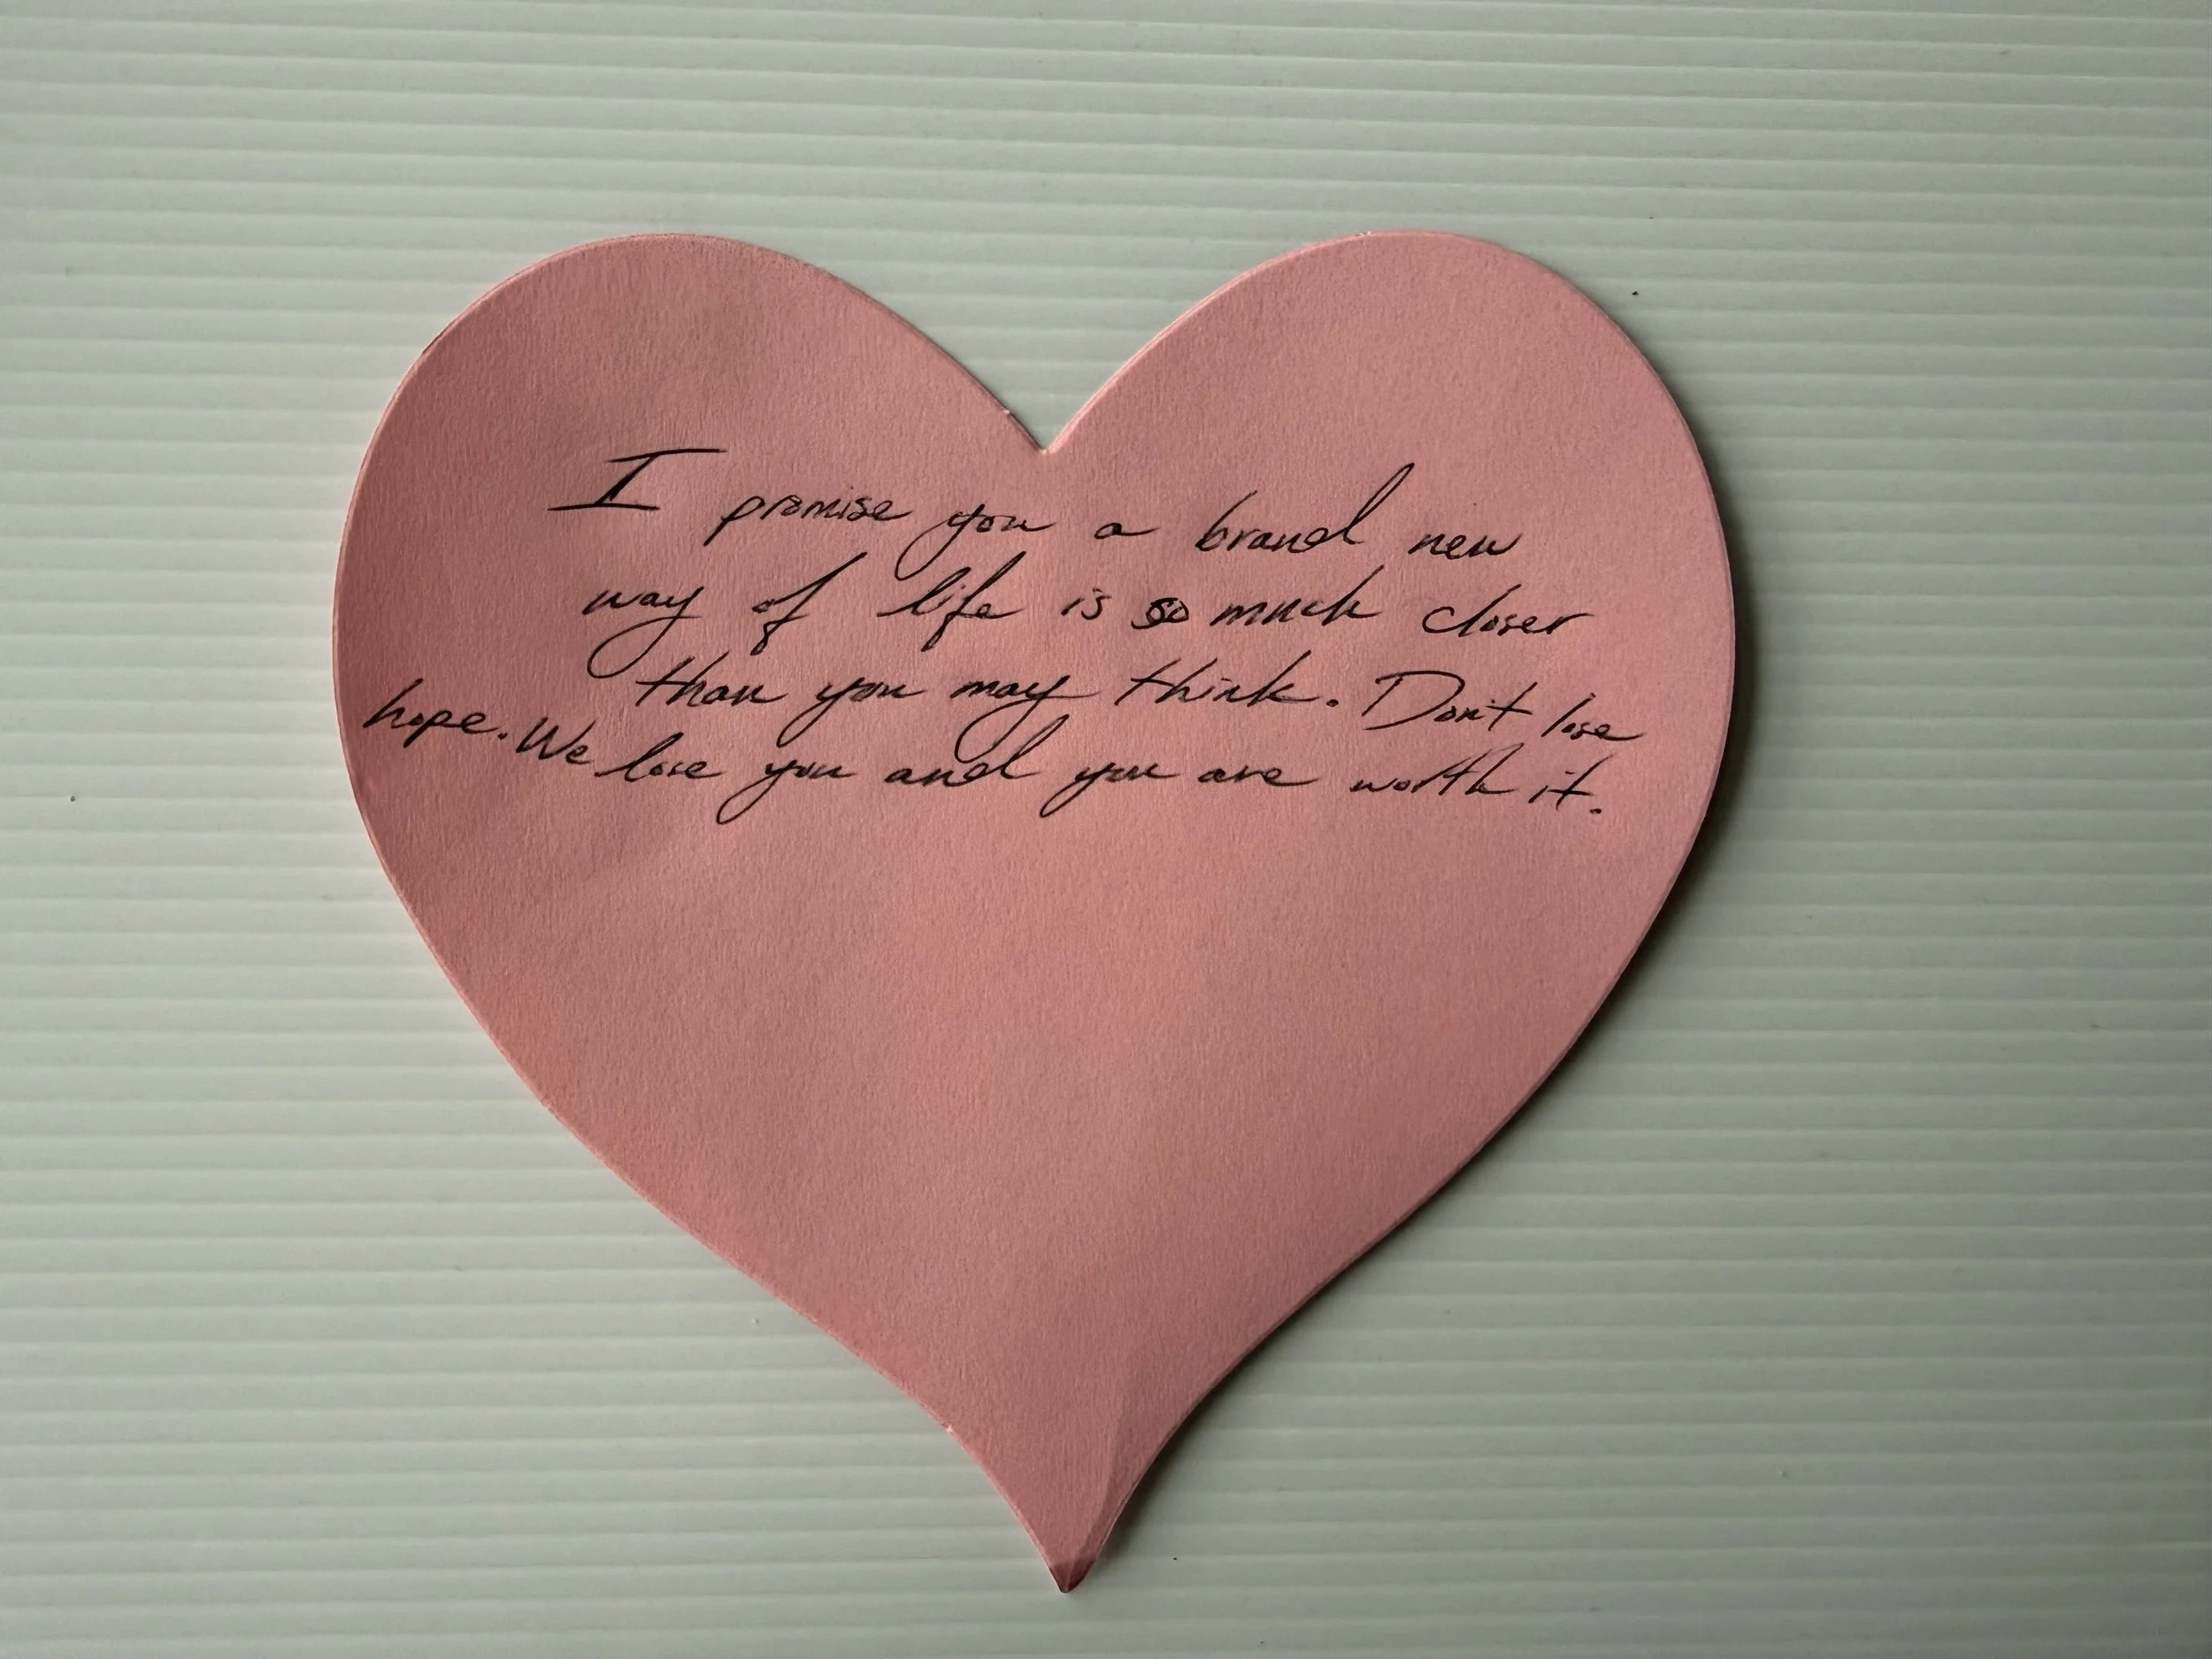 I promise you a brand new
way of life is so much closer
than you may think. Don't lose
hope. We love you and you are worth it.